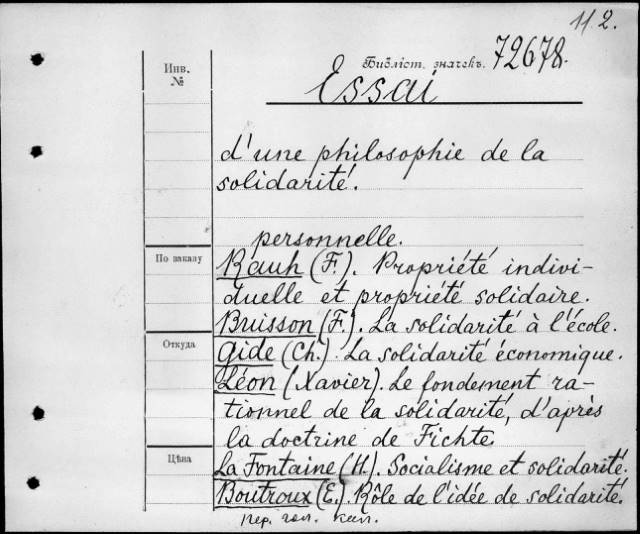 11 2.
Инв.
№
Библіот. значекъ. 72678.
Essai
d'une philosophie de la
solidarité.
personnelle.
По заказу
Rauh (F.). Propriété indivi-
duelle et propriété solidaire.
Buisson (F.). La solidarité à l'école.
Откуда
Gide (Ch.). La solidarité économique.
Léon (Xavier). Le fondement ra-
tionnel de la solidarité, d'après
la doctrine de Fichte.
Цѣна
La Fontaine (H.). Socialisme et solidarité.
Boutroux (E.). Rôle de l'idée de solidarité.